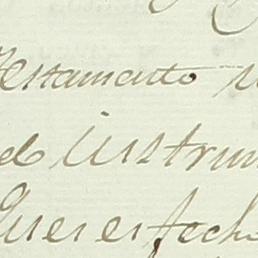 Testamento
do Instrum
Quer es fech